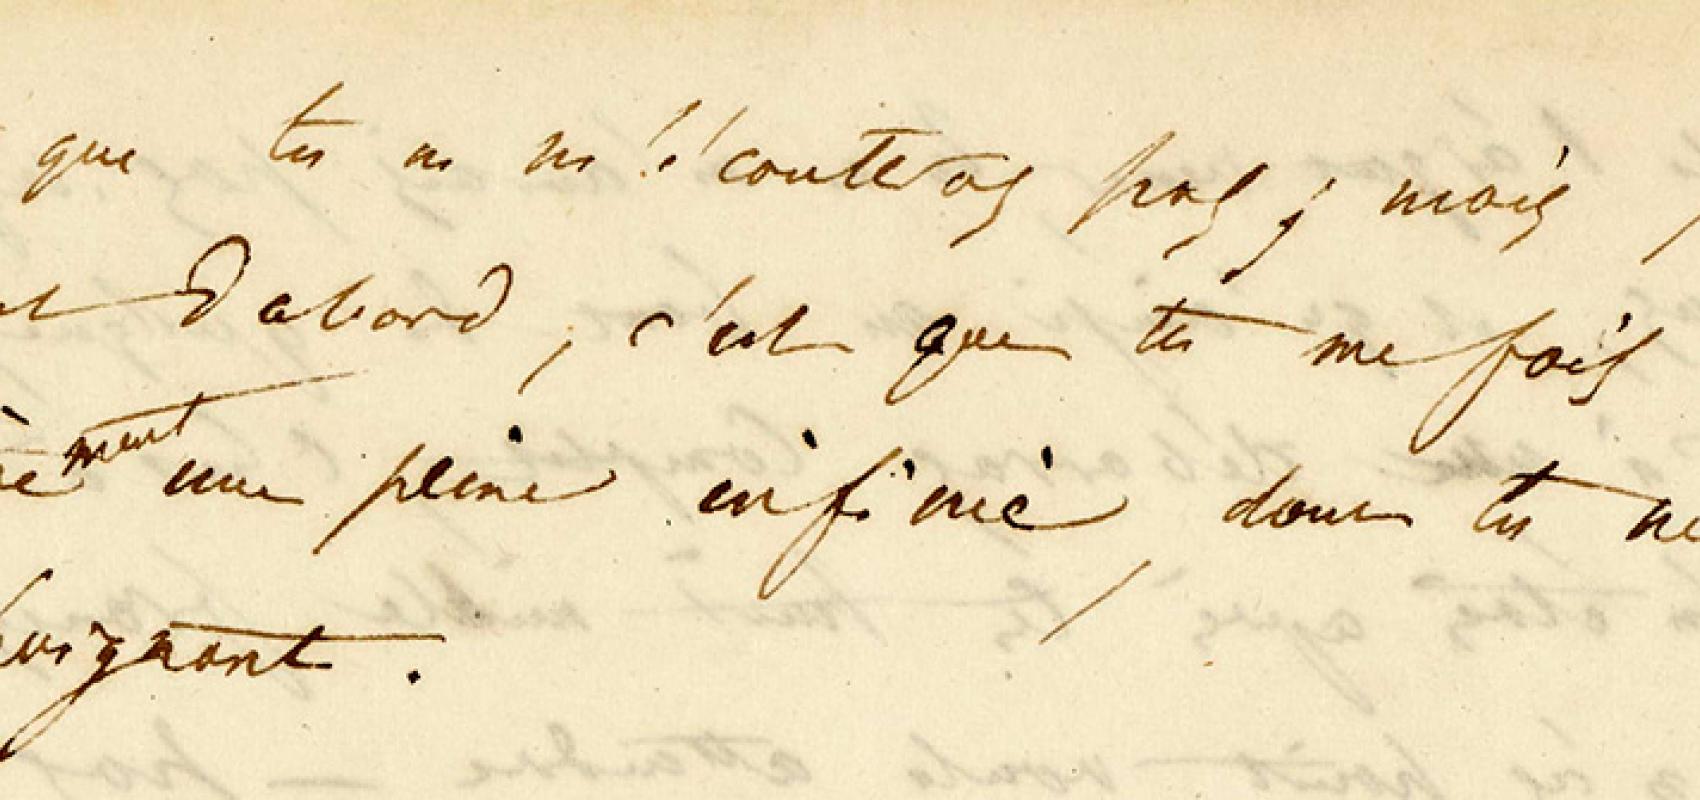 que tu ne m'écouteras pas ; mais
Dabord, c'est que tu me fais
ment une peine infinie, dont tu ne